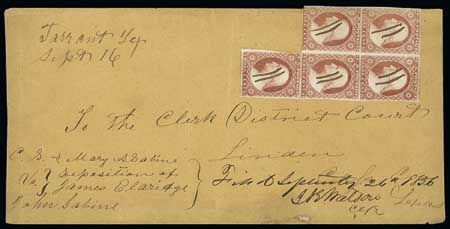 Tarrant
Sept 16
To The Clerk District Court
Linden
C. B. & Mary A Sabine
Vs. } Deposition of
James Claridge
John Sabine
26th 1856
J B Watson